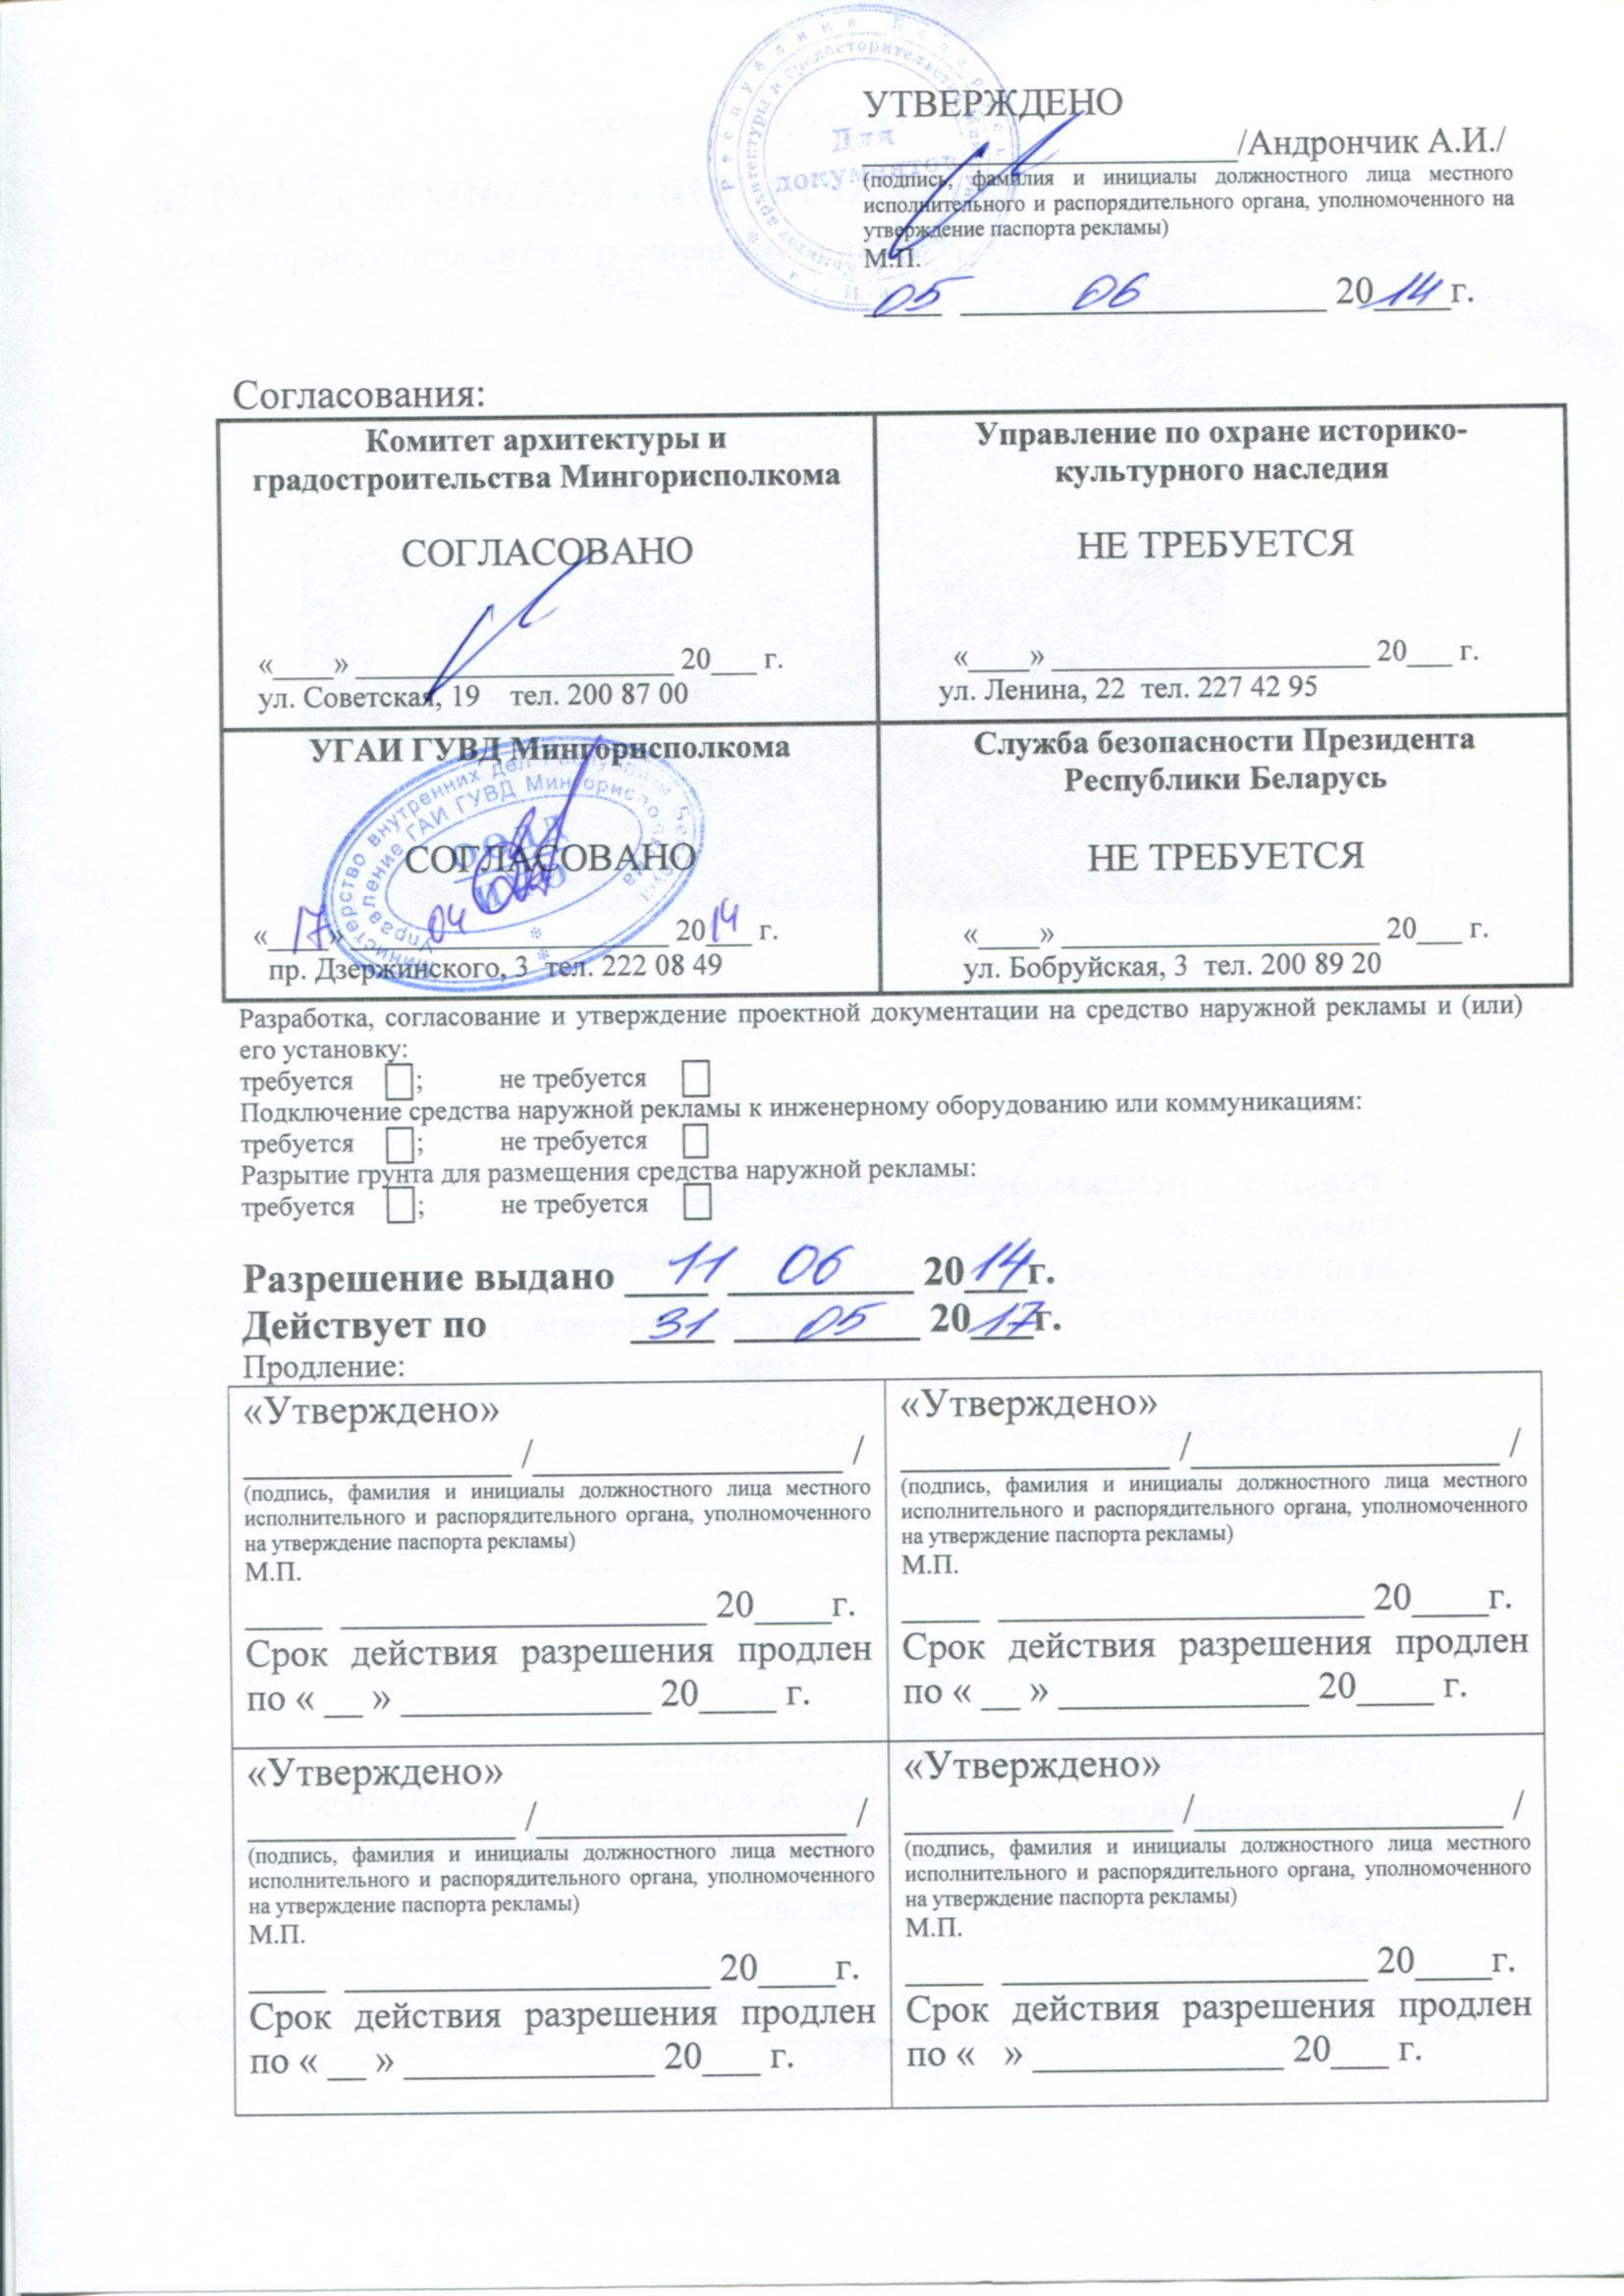 УТВЕРЖДЕНО
/Андрончик А.И./
(подпись, фамилия и инициалы должностного лица местного
исполнительного и распорядительного органа, уполномоченного на
утверждение паспорта рекламы)
М.П.
05 06 2014г.
Для
документов
Согласования:
Комитет архитектуры и
градостроительства Мингорисполкома
СОГЛАСОВАНО
«____» ____________________ 20___ г.
ул. Советская, 19 тел. 200 87 00
Управление по охране историко-
культурного наследия
НЕ ТРЕБУЕТСЯ
«____» ____________________ 20___ г.
ул. Ленина, 22 тел. 227 42 95
УГАИ ГУВД Мингорисполкома
СОГЛАСОВАНО
«17» 04 2014 г.
пр. Дзержинского, 3 тел. 222 08 49
Министерство внутренних дел Республики Беларусь
Управление ГАИ ГУВД Мингорисполкома
Служба безопасности Президента
Республики Беларусь
НЕ ТРЕБУЕТСЯ
«____» ____________________ 20___ г.
ул. Бобруйская, 3 тел. 200 89 20
Разработка, согласование и утверждение проектной документации на средство наружной рекламы и (или)
его установку:
требуется ☐; не требуется ☐
Подключение средства наружной рекламы к инженерному оборудованию или коммуникациям:
требуется ☐; не требуется ☐
Разрытие грунта для размещения средства наружной рекламы:
требуется ☐; не требуется ☐
Разрешение выдано 11 06 2014г.
Действует по 31 05 2017г.
Продление:
«Утверждено»
______________ /________________ /
(подпись, фамилия и инициалы должностного лица местного
исполнительного и распорядительного органа, уполномоченного
на утверждение паспорта рекламы)
М.П.
____ ___________________ 20____г.
Срок действия разрешения продлен
по « __ » _____________ 20____ г.
«Утверждено»
______________ /________________ /
(подпись, фамилия и инициалы должностного лица местного
исполнительного и распорядительного органа, уполномоченного
на утверждение паспорта рекламы)
М.П.
____ ___________________ 20____г.
Срок действия разрешения продлен
по « __ » _____________ 20____ г.
«Утверждено»
______________ /________________ /
(подпись, фамилия и инициалы должностного лица местного
исполнительного и распорядительного органа, уполномоченного
на утверждение паспорта рекламы)
М.П.
____ ___________________ 20____г.
Срок действия разрешения продлен
по « __ » _____________ 20___ г.
«Утверждено»
______________ /________________ /
(подпись, фамилия и инициалы должностного лица местного
исполнительного и распорядительного органа, уполномоченного
на утверждение паспорта рекламы)
М.П.
____ ___________________ 20____г.
Срок действия разрешения продлен
по « » _____________ 20___ г.